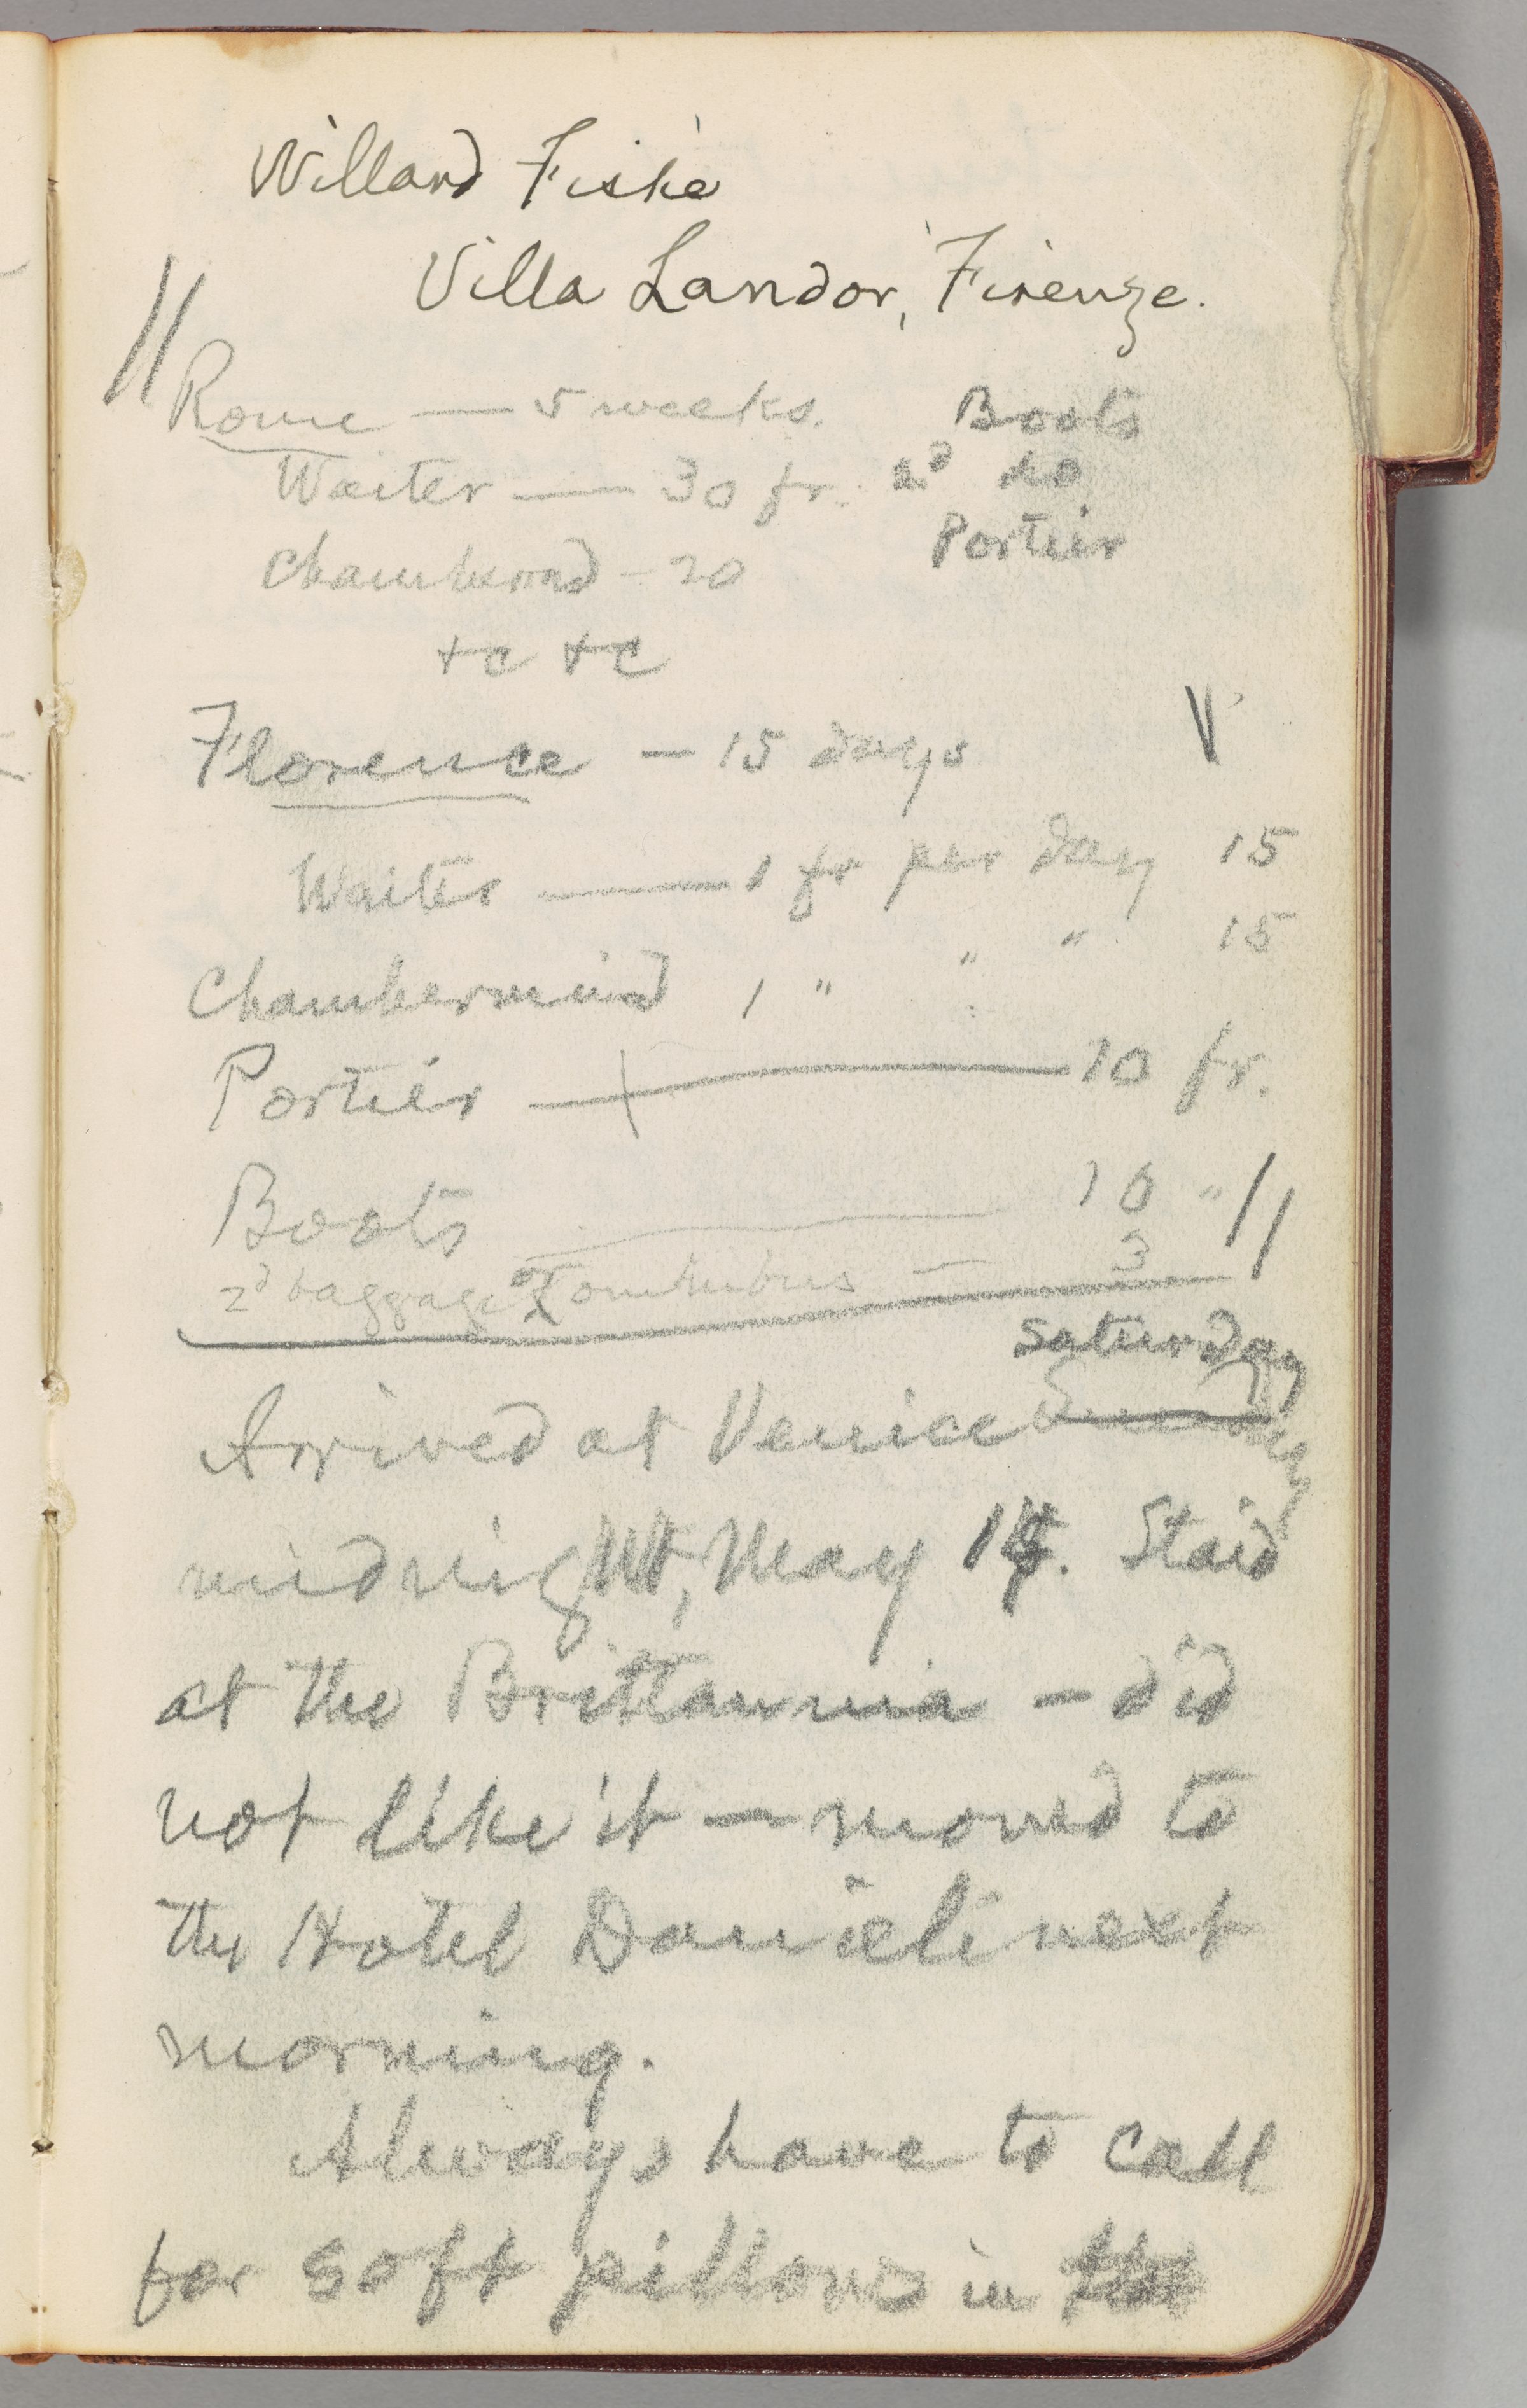 Willard Fiske
Villa Landor, Firenze.
Rome — 5 weeks. Boots
Waiter — 30 fr. 2d do
Chambermd - 20 Portier
+c +c
Florence — 15 days
Waiter — 1 fr per day 15
Chambermaid 1 " " " 15
Portier — 10 fr.
Boots — 10 "
2d baggage & omnibus — 3
Saturday
Arrived at Venice Sunday
midnight, May 14. Staid
at the Brittannia — did
not like it — moved to
the Hotel Danieli next
morning.
Always have to call
for soft pillows in